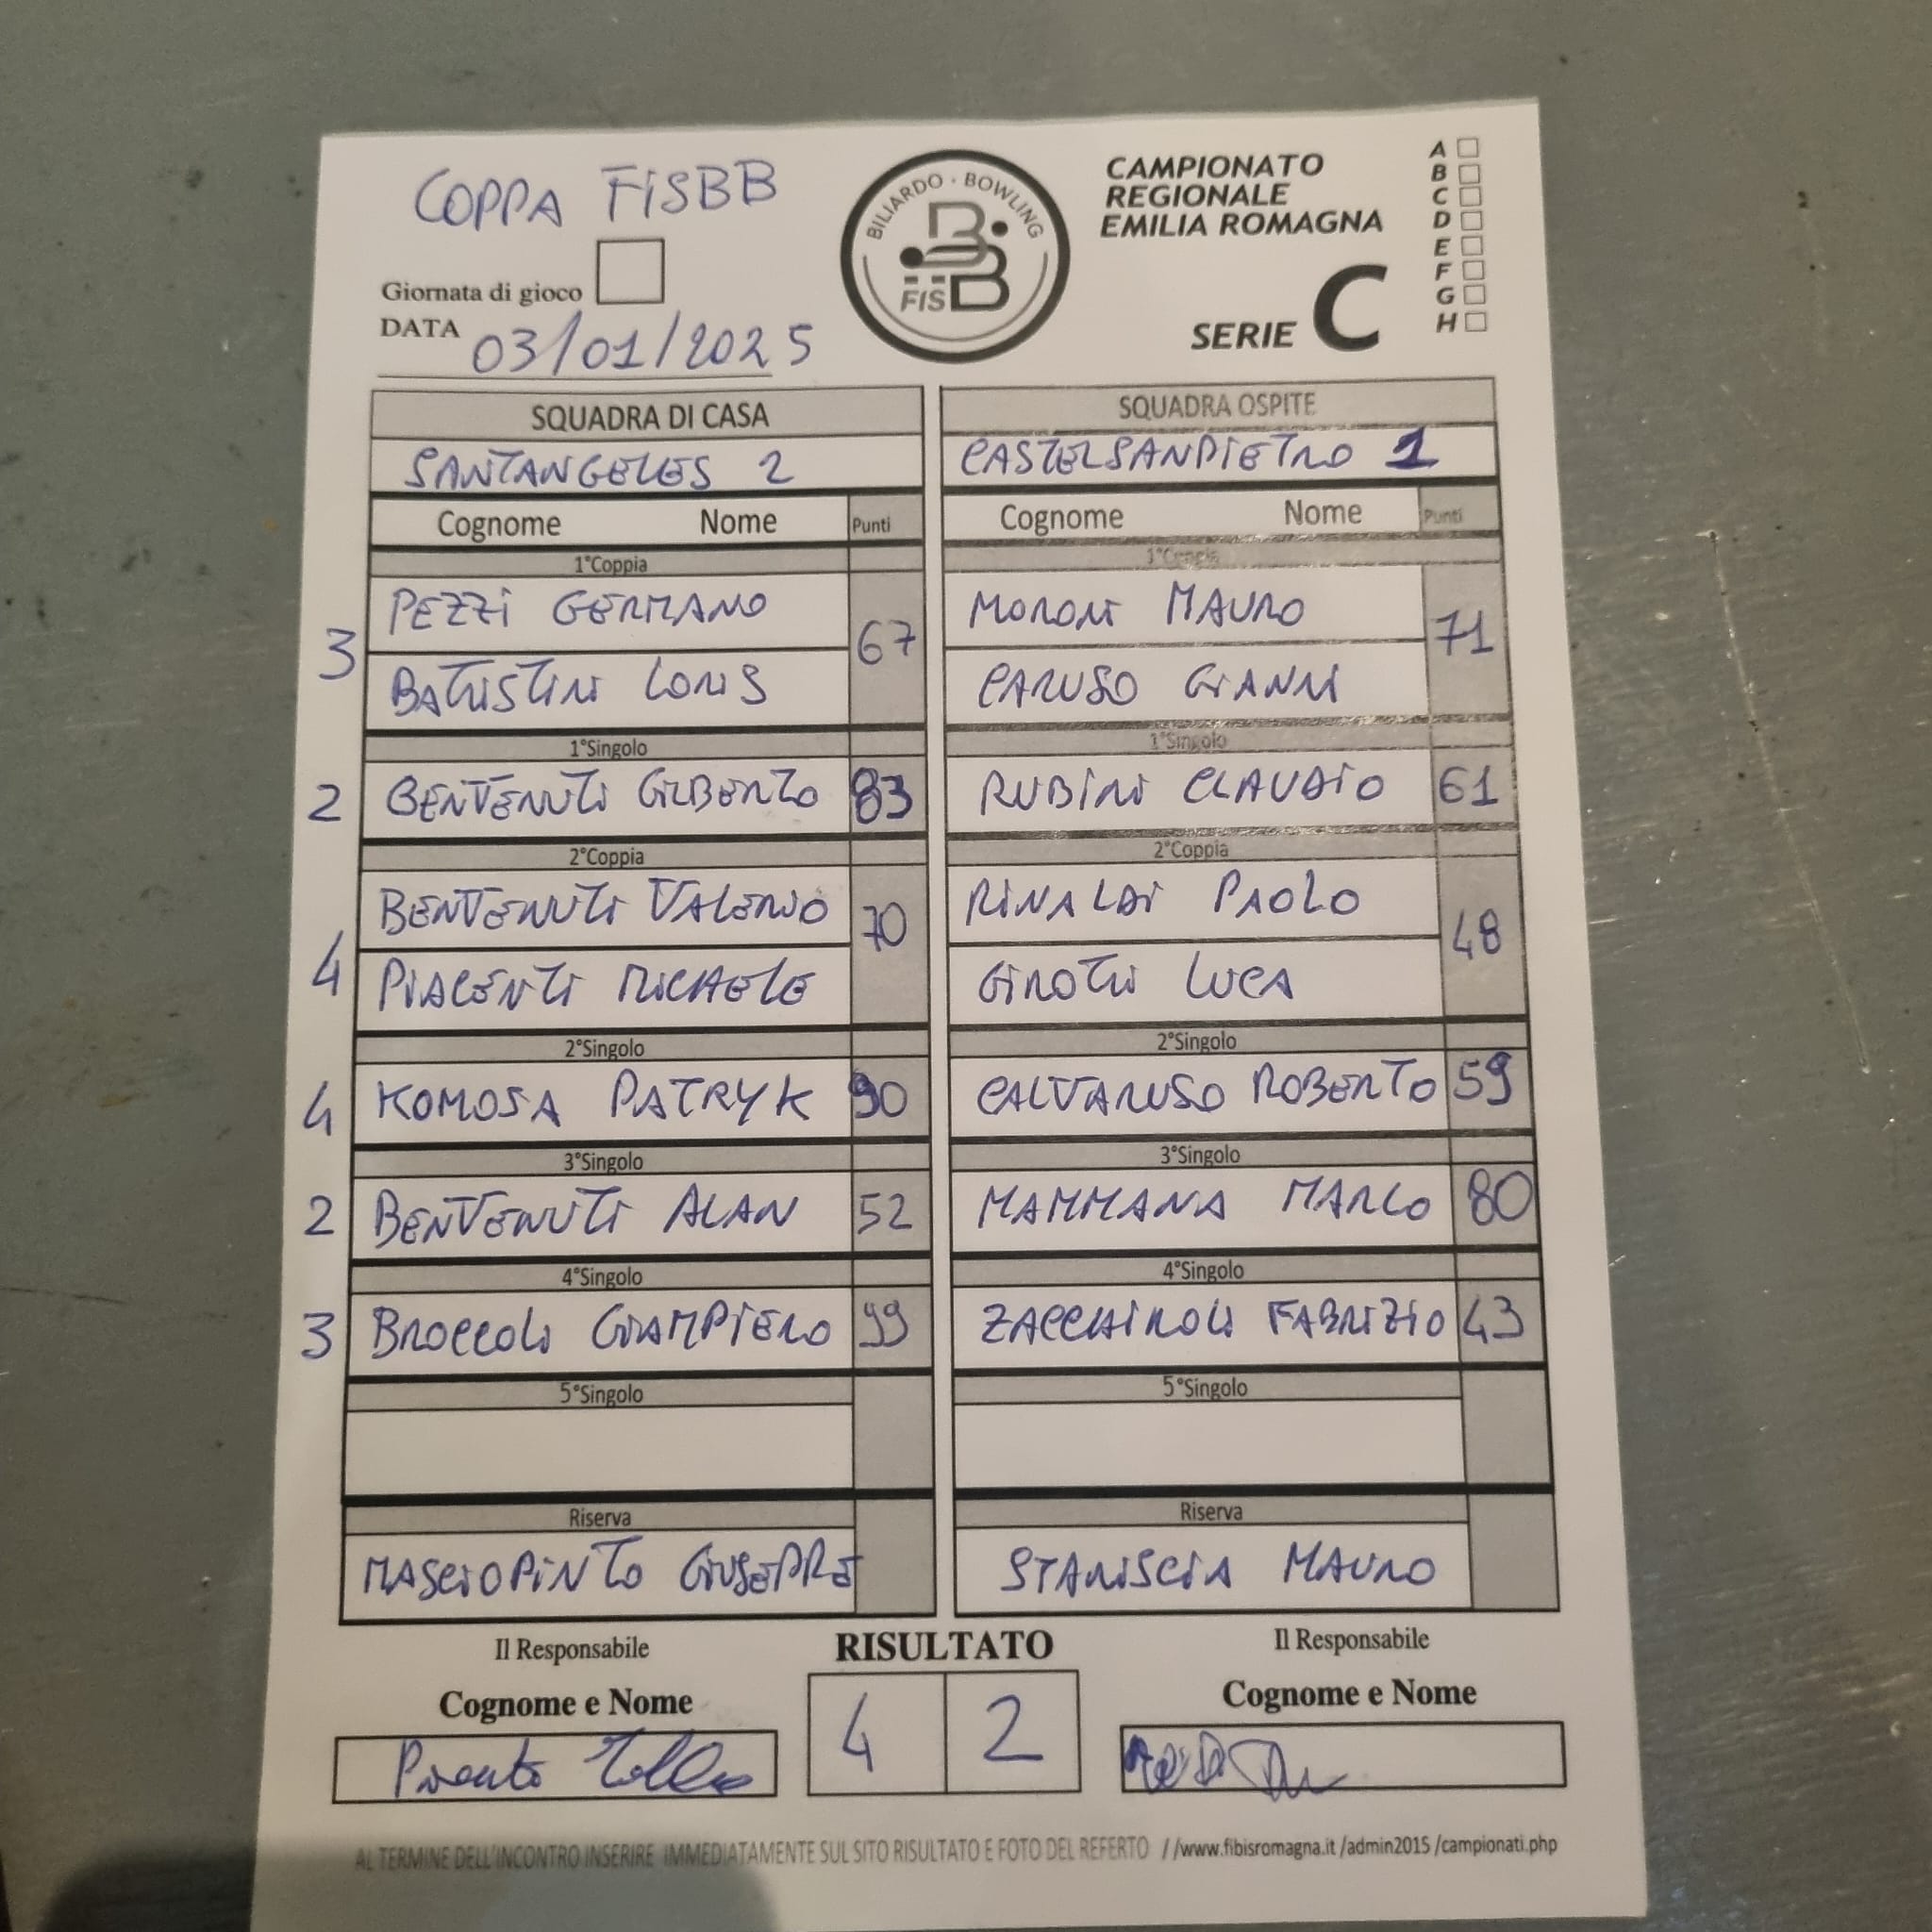 COPPA FISBB
Giornata di gioco
DATA 03/01/2025
BILIARDO · BOWLING
FISBB
CAMPIONATO
REGIONALE
EMILIA ROMAGNA
SERIE C
A
B
C
D
E
F
G
H
SQUADRA DI CASA SQUADRA OSPITE
SANTANGELES 2 CASTELSANPIETRO 1
Cognome Nome Punti Cognome Nome Punti
1°Coppia 1°Coppia
PEZZI GERMANO MORONI MAURO
3 67 71
BATTISTINI LORIS CARUSO GIANNI
1°Singolo 1°Singolo
2 BENVENUTI GILBERTO 83 RUBINI CLAUDIO 61
2°Coppia 2°Coppia
BENVENUTI VALERIO RINALDI PAOLO
4 70 48
PIACENTI MICHAELE GIROTTI LUCA
2°Singolo 2°Singolo
4 KOMOSA PATRYK 90 CALVARUSO ROBERTO 59
3°Singolo 3°Singolo
2 BENVENUTI ALAN 52 MAMMANA MARCO 80
4°Singolo 4°Singolo
3 BROCCOLI GIAMPIERO 99 ZACCHIROLI FABRIZIO 43
5°Singolo 5°Singolo
Riserva Riserva
MASCIOPINTO GIUSEPPE STANISCIA MAURO
Il Responsabile RISULTATO Il Responsabile
Cognome e Nome 4 2 Cognome e Nome
AL TERMINE DELL'INCONTRO INSERIRE IMMEDIATAMENTE SUL SITO RISULTATO E FOTO DEL REFERTO //www.fibisromagna.it /admin2015 /campionati.php